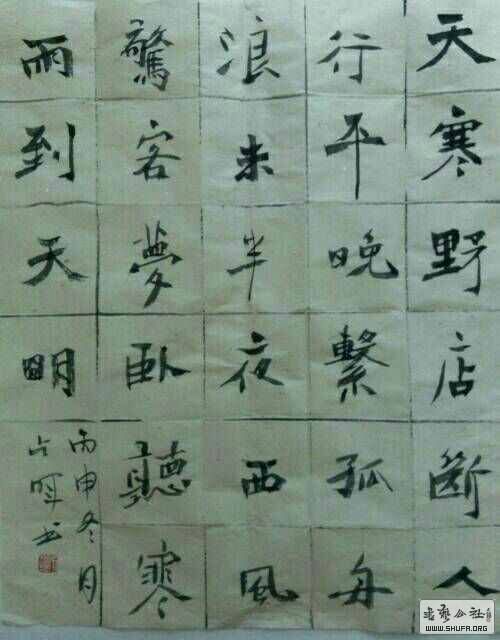 天寒野店斷人
行平晚繫孤舟
浪未半夜西風
驚客夢臥聽寒
雨到天明
丙申冬月
书
公社
WWW.SHUFA.ORG